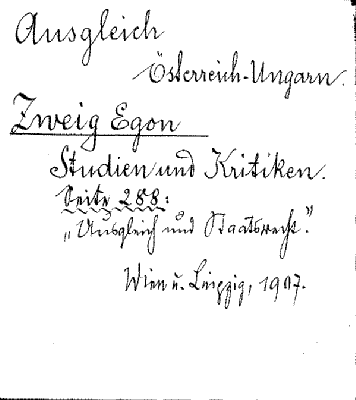 Ausgleich
Österreich-Ungarn.
Zweig Egon
Studien und Kritiken.
Seite 288:
„Ausgleich und Staatsrecht."
Wien u. Leipzig, 1907.